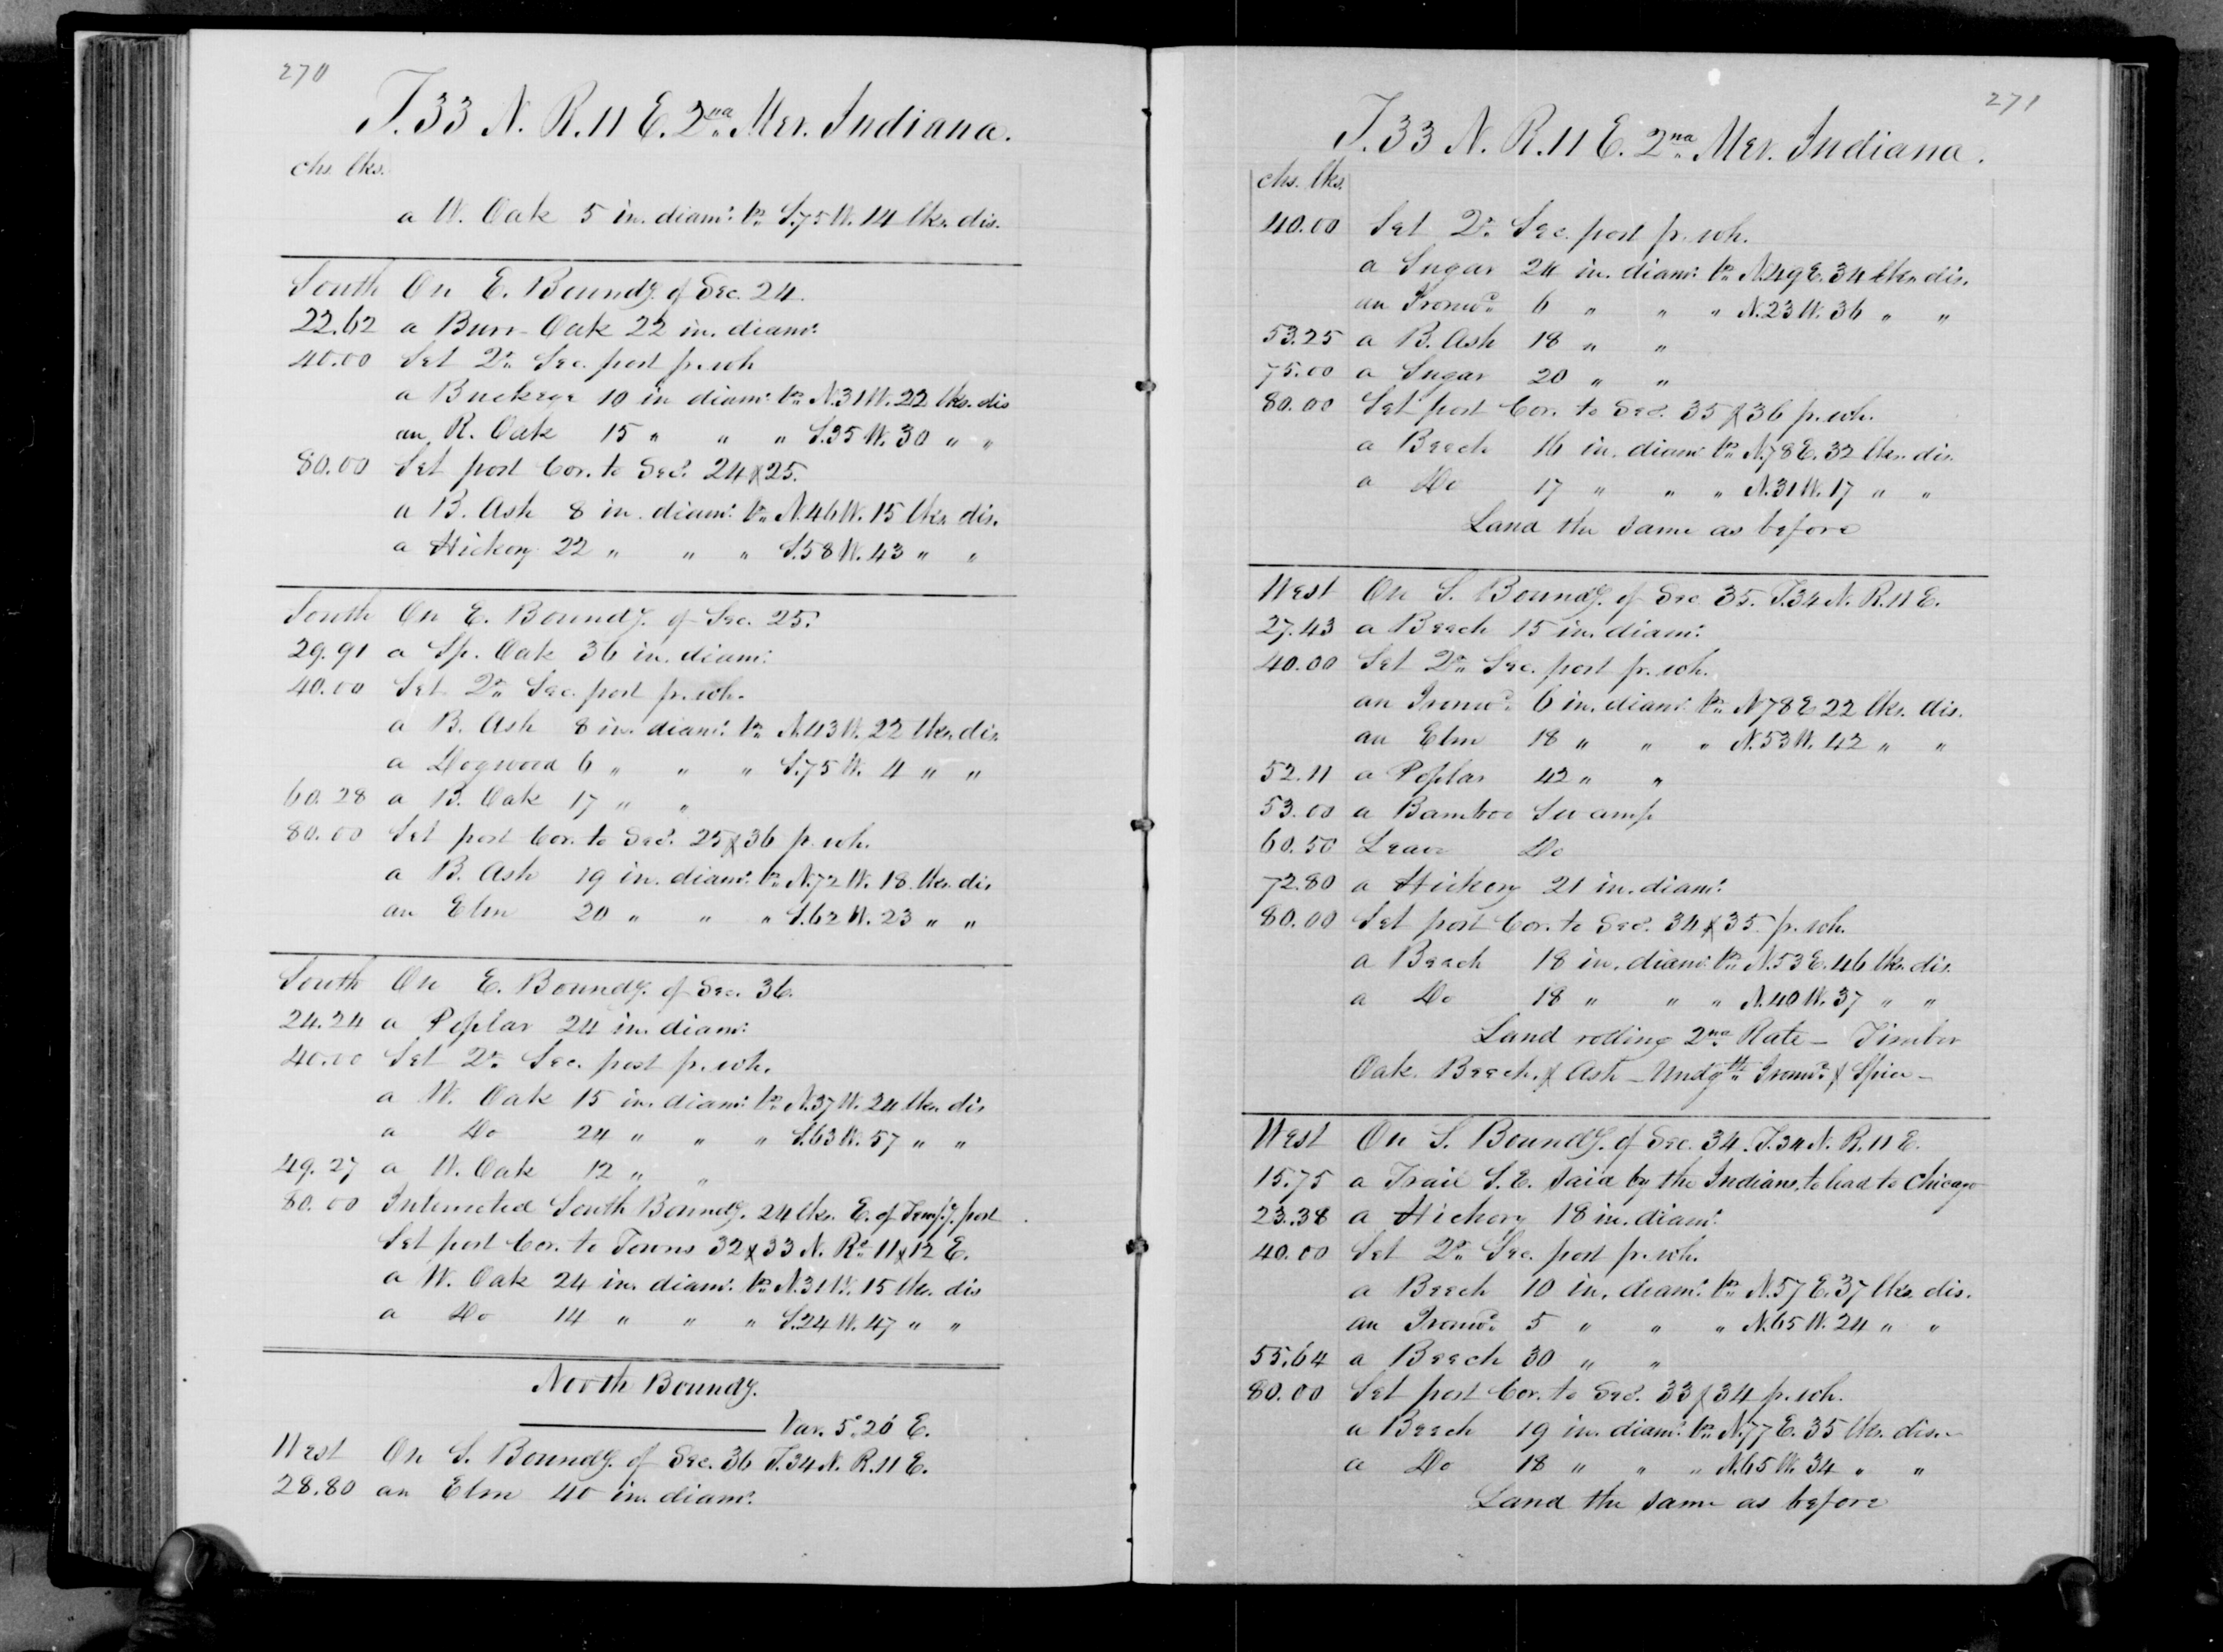 270
T. 33 N. R. 11 E. 2nd Mer. Indiana.
chs. lks.
a W. Oak 5 in. diamr. brs S. 75 W. 14 lks. dis.
South On E. Boundy. of Sec. 24.
22.62 a Burr Oak 22 in. diamr.
40.00 Set Qr. Sec. post fr. wh
a Buckeye 10 in diamr. brs N. 31 W. 22 lks. dis
an R. Oak 15 " " " S. 35 W. 30 " "
80.00 Set post Cor. to Secs. 24 & 25.
a B. Ash 8 in. diamr. brs N. 46 W. 15 lks. dis.
a Hickory 22 " " " S. 58 W. 43 " "
South On E. Boundy. of Sec. 25.
29.91 a Sp. Oak 36 in. diamr.
40.00 Set Qr. Sec. post fr. wh.
a B. Ash 8 in. diamr. brs N. 43 W. 22 lks. dis
a Dogwood 6 " " " S. 75 W. 4 " "
60.28 a B. Oak 17 " "
80.00 Set post Cor. to Secs. 25 & 36 fr. wh.
a B. Ash 19 in. diamr. brs N. 72 W. 18 lks. dis
an Elm 20 " " " S. 62 W. 23 " "
South On E. Boundy. of Sec. 36.
24.24 a Poplar 24 in. diamr.
40.00 Set Qr. Sec. post fr. wh.
a W. Oak 15 in. diamr. brs N. 37 W. 24 lks. dis
a Do 24 " " " S. 63 W. 57 " "
49.27 a W. Oak 12 " "
80.00 Intersected South Boundy. 24 lks. E. of Temp.y. post
Set post Cor. to Towns 32 & 33 N. Rs. 11 & 12 E.
a W. Oak 24 in. diamr. brs N. 31 W. 15 lks. dis
a Do 14 " " " S. 24 W. 47 " "
North Boundy.
Var. 5° 20' E.
West On S. Boundy. of Sec. 36 T. 34 N. R. 11 E.
28.80 an Elm 40 in. diamr.
271
T. 33 N. R. 11 E. 2nd Mer. Indiana.
chs. lks.
40.00 Set Qr. Sec. post fr. wh.
a Sugar 24 in. diamr. brs N. 49 E. 34 lks. dis.
an Ironwd. 6 " " " N. 23 W. 36 " "
53.25 a B. Ash 18 " "
75.00 a Sugar 20 " "
80.00 Set post Cor. to Secs. 35 & 36 fr. wh.
a Beech 16 in. diamr. brs N. 78 E. 32 lks. dis.
a Do 17 " " " N. 31 W. 17 " "
Land the same as before
West On S. Boundy. of Sec 35. T. 34 N. R. 11 E.
27.43 a Beech 15 in. diamr.
40.00 Set Qr. Sec. post fr. wh.
an Ironwd. 6 in. diamr. brs N 78 E 22 lks. dis.
an Elm 18 " " " N. 53 W. 42 " "
52.11 a Poplar 42 " "
53.00 a Bamboo Swamp
60.50 Leave Do
72.80 a Hickory 21 in. diamr.
80.00 Set post Cor. to Secs. 34 & 35 fr. wh.
a Beech 18 in. diamr. brs N. 53 E. 46 lks. dis.
a Do 18 " " " N. 40 W. 37 " "
Land rolling 2nd Rate - Timber
Oak. Beech. & Ash - Undgth. Ironwd. & Spice -
West On S. Boundy. of Sec. 34. T. 34 N. R. 11 E.
15.75 a Trail S. E. said by the Indians, to lead to Chicago
23.38 a Hickory 18 in. diamr.
40.00 Set Qr. Sec. post fr. wh.
a Beech 10 in. diamr. brs N. 57 E. 37 lks. dis.
an Ironwd. 5 " " " N. 65 W. 24 " "
55.64 a Beech 30 " "
80.00 Set post Cor. to Secs. 33 & 34 fr. wh.
a Beech 19 in. diamr. brs N. 77 E. 35 lks. dis. -
a Do 18 " " " N. 65 W. 34 " "
Land the same as before